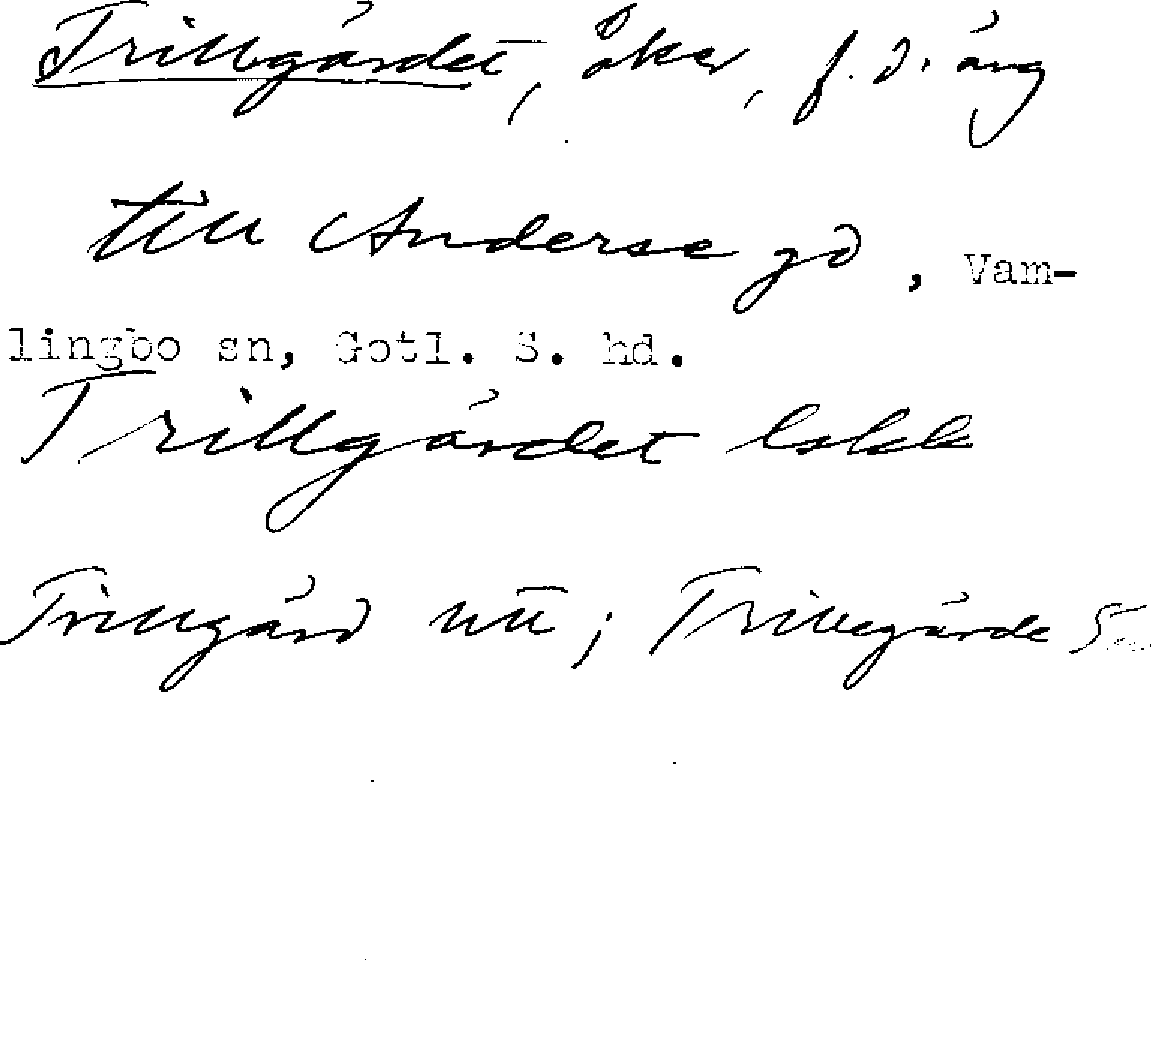 Trillgärdet, åker, f. d. äng
till Anderse gd, Vam-
lingbo sn, Gotl. S. hd.
Trillgärdet lskk
Trillgärd utt; Trillegärde